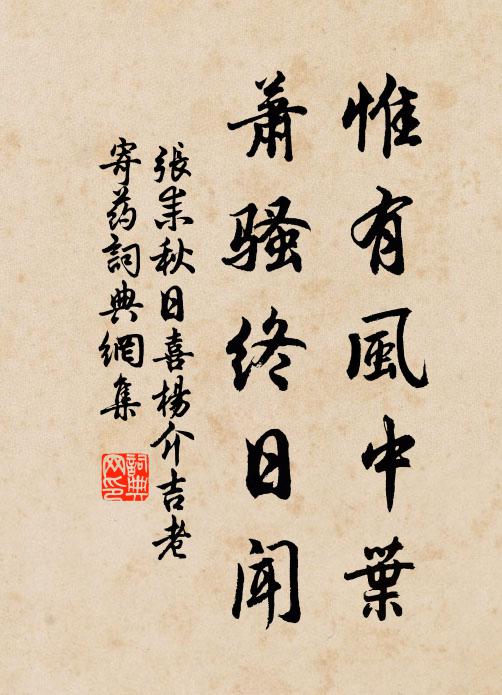 惟有風中葉
蕭騷終日聞
張耒秋日喜楊介吉老
寄药詞典網集
詞典网印